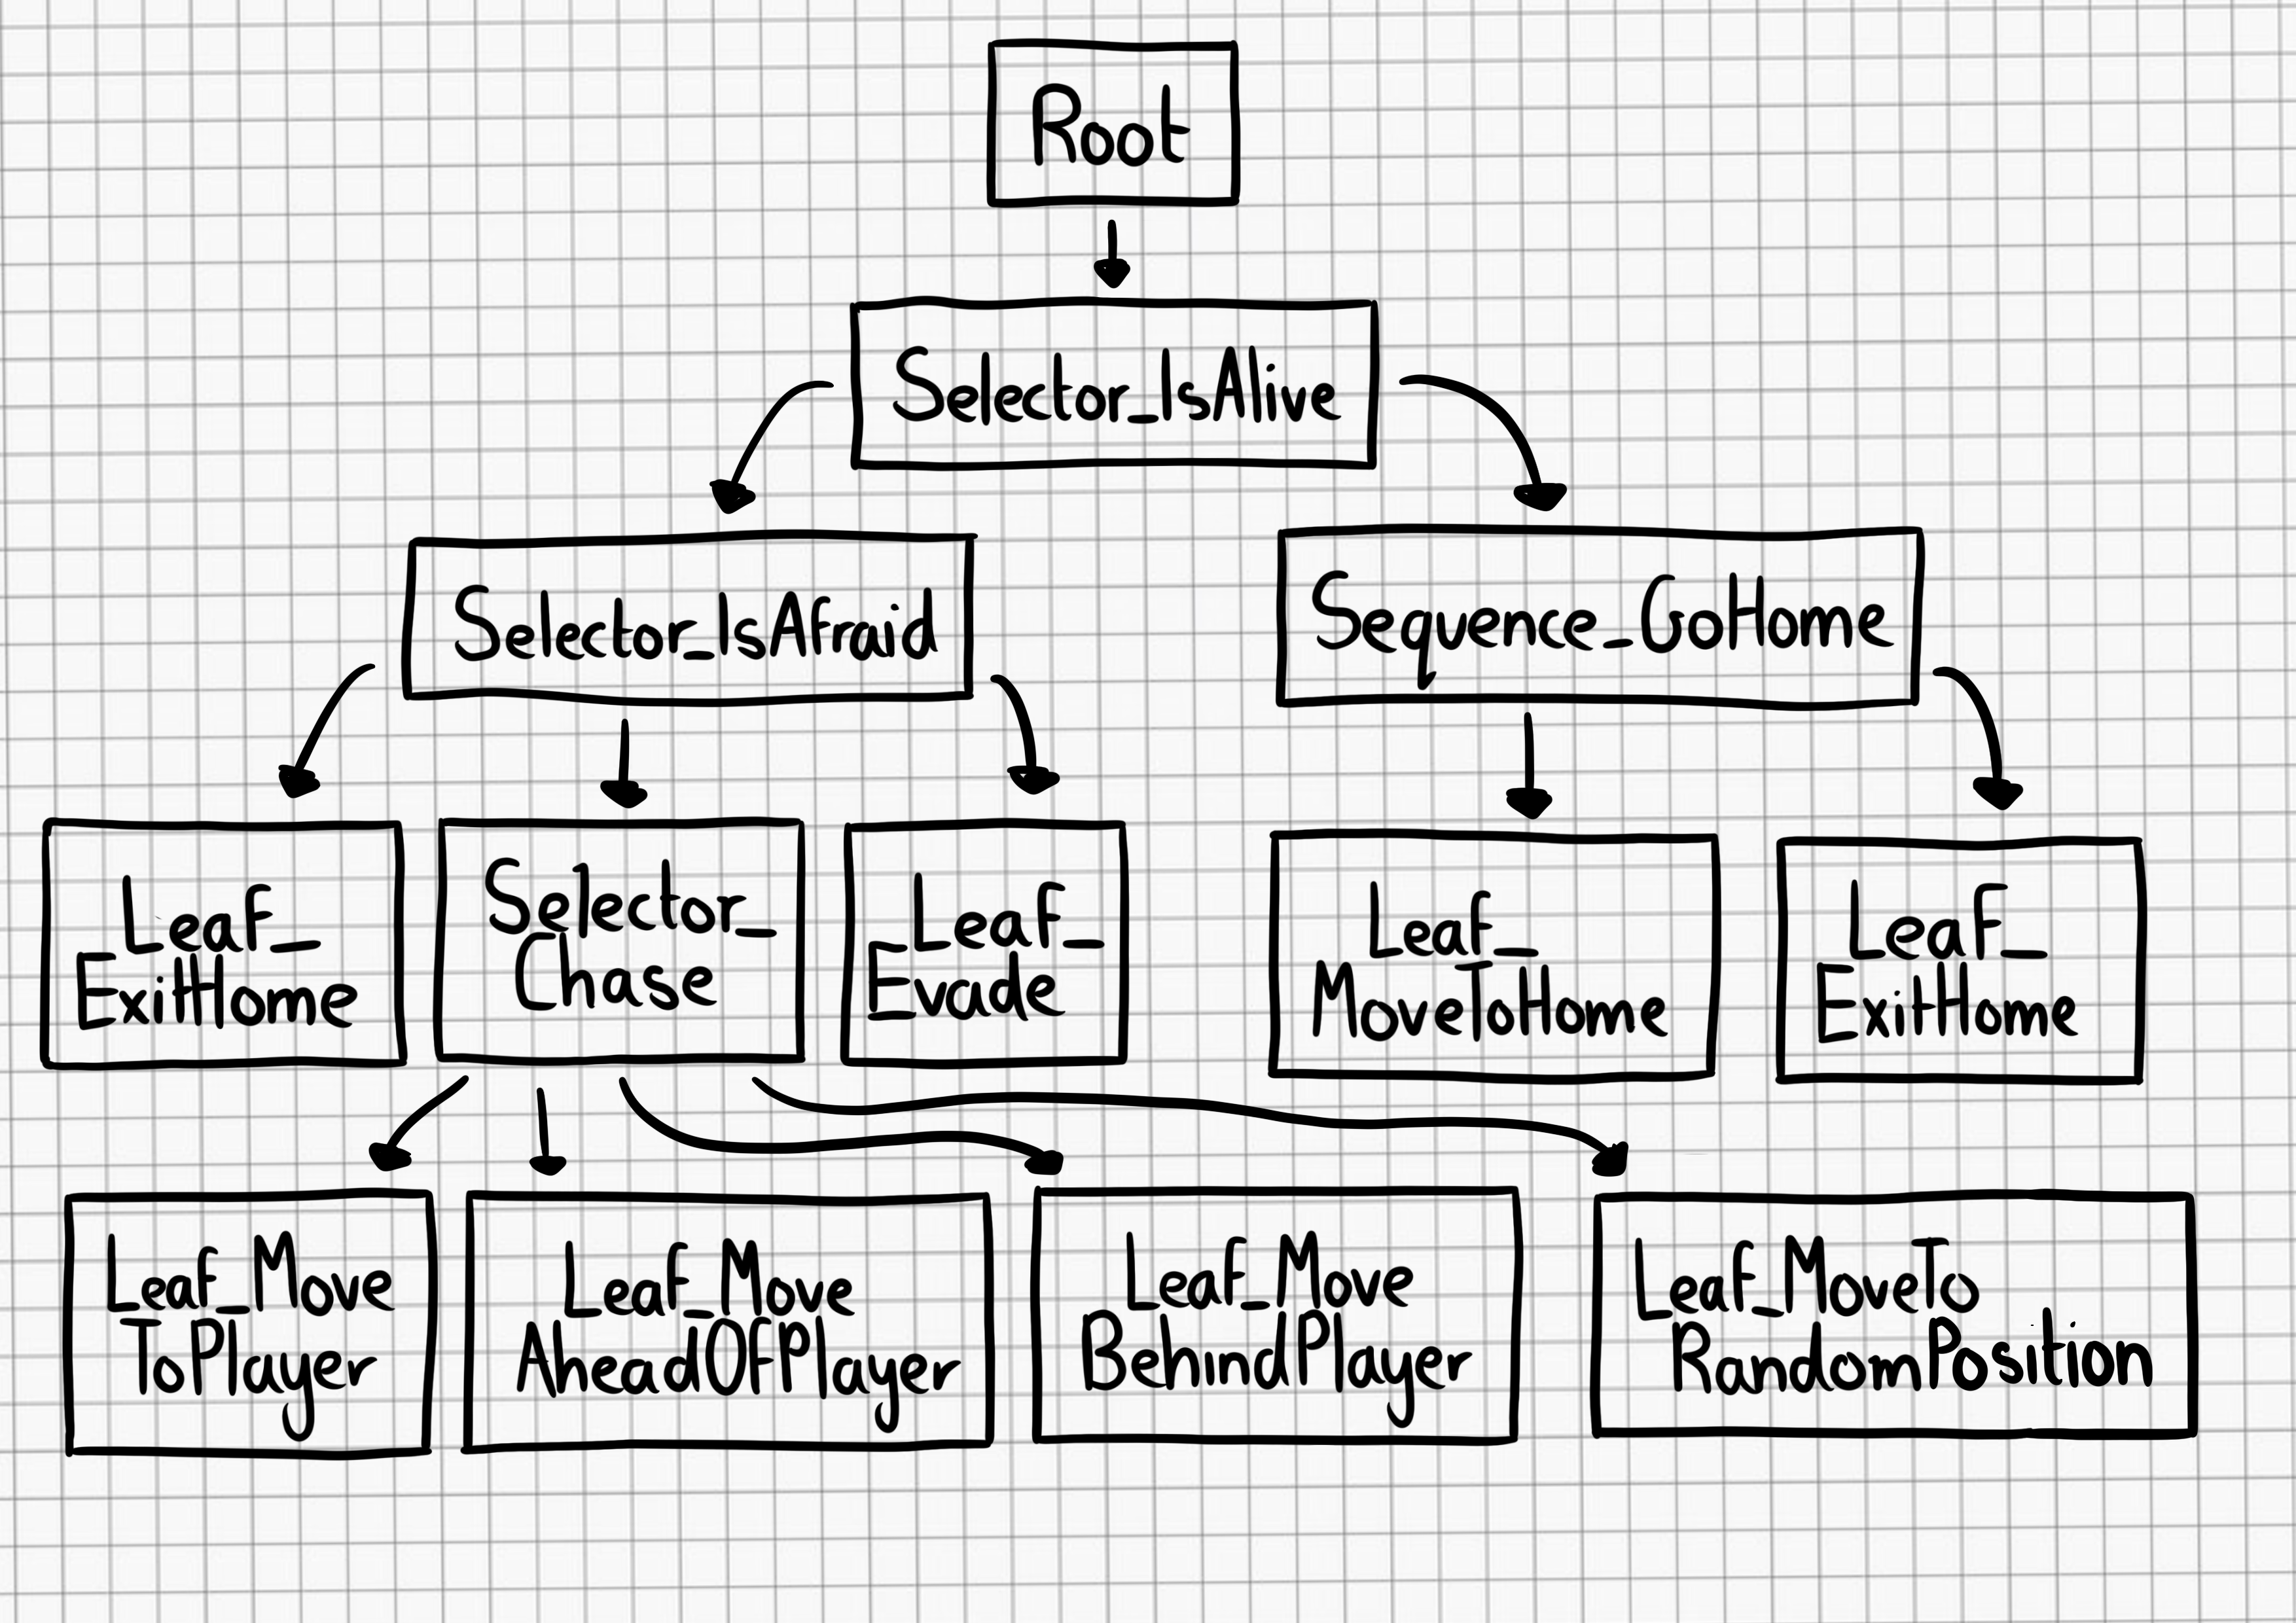 Root
Selector_IsAlive
Selector_IsAfraid
Sequence_GoHome
Leaf_
ExitHome
Selector_
Chase
Leaf_
Evade
Leaf_
MoveToHome
Leaf_
ExitHome
Leaf_Move
ToPlayer
Leaf_Move
AheadOfPlayer
Leaf_Move
BehindPlayer
Leaf_MoveTo
RandomPosition